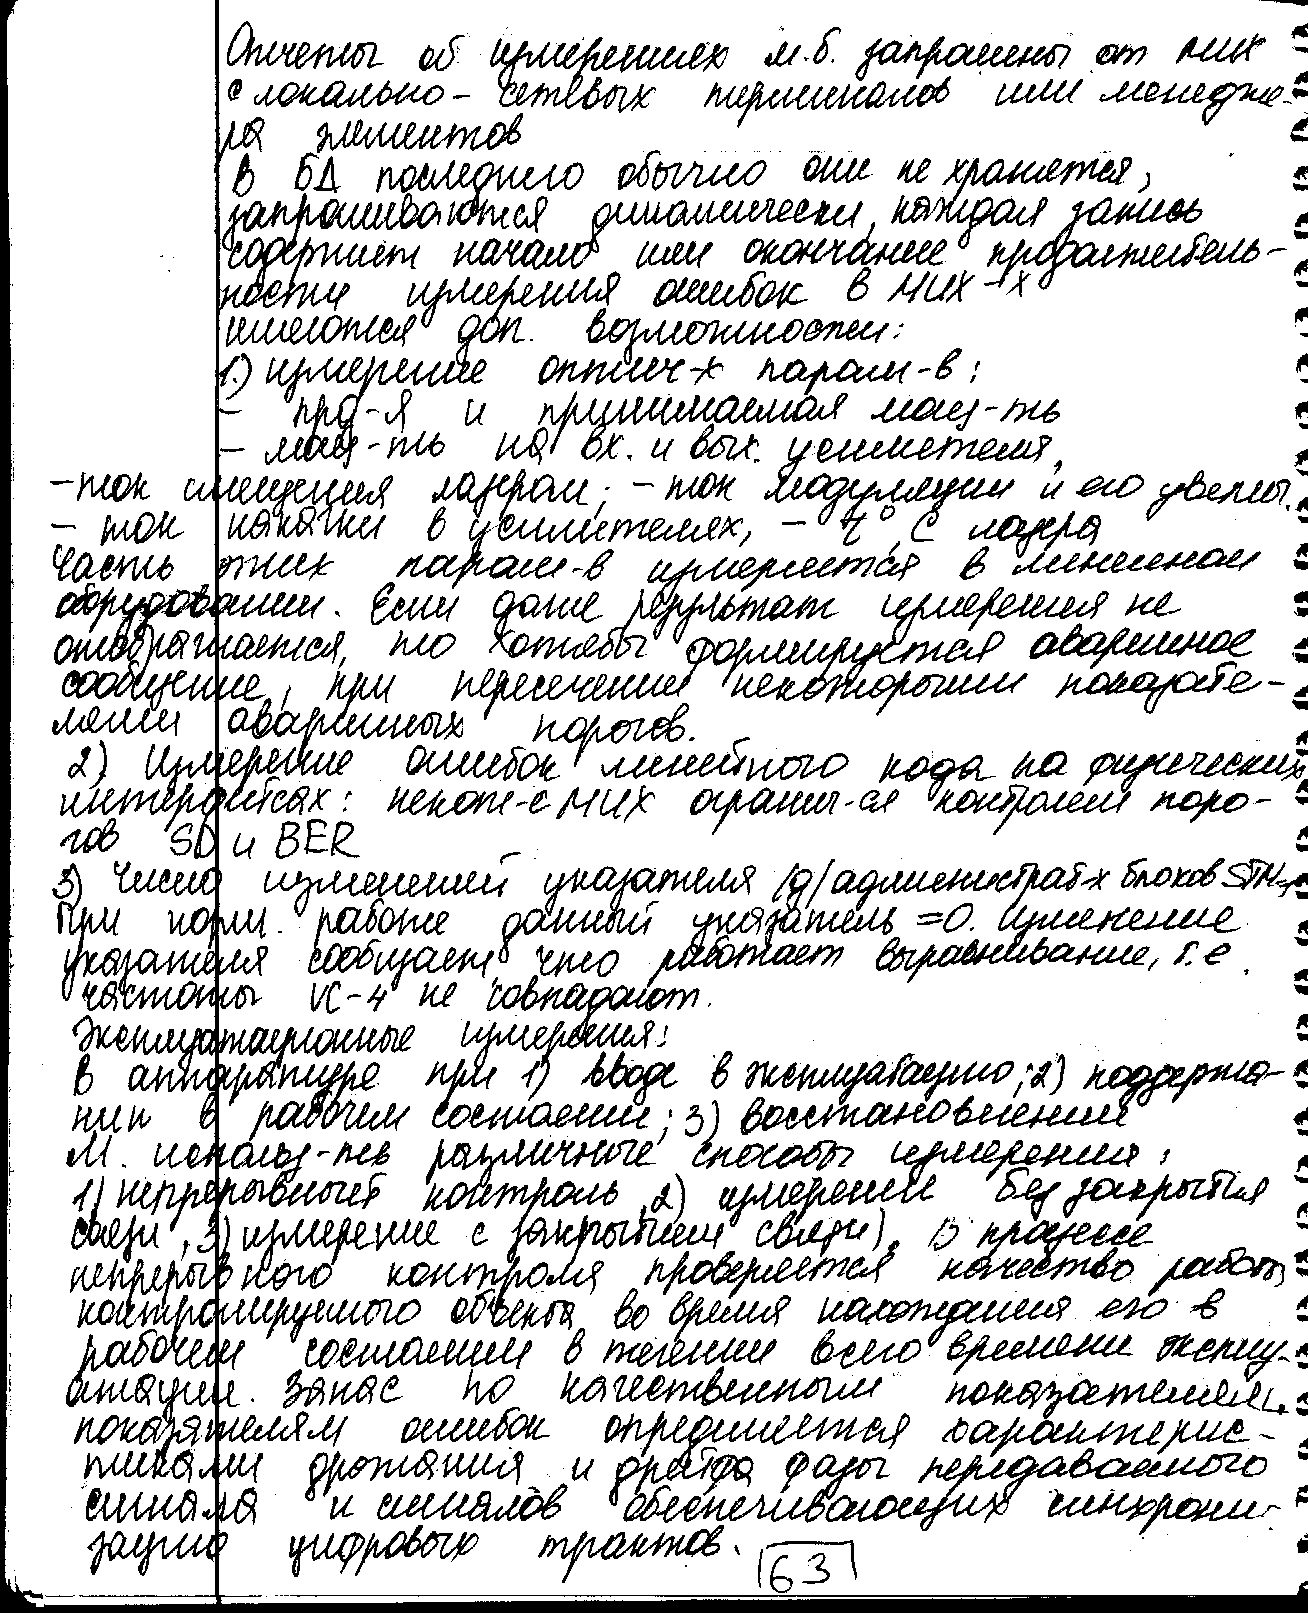 Отчеты об измерениях м.б. запрошены от МИХ
с локально-сетевых терминалов или менедже-
ра элементов
В БД последнего обычно они не хранятся,
запрашиваются динамически, каждая запись
содержит начало или окончание продолжитель-
ности измерения ошибок в МИХ-х
имеются доп. возможности:
1.) измерение оптич-х парам-в:
- прд-я и принимаемая мощ-ть
- мощ-ть на вх. и вых. усилителя,
- ток смещения лазером; - ток модуляции и его увелич.
- ток накачки в усилителях, - t° С лазера
Часть этих парам-в измеряется в линейном
оборудовании. Если даже результат измерения не
отображается, то хотябы формируется аварийное
сообщение, при пересечении некоторыми показате-
лями аварийных порогов.
2) Измерение ошибок линейного кода на физических
интерфейсах: некот-е МИХ огранич-ся контролем поро-
гов SD и BER
3) Число изменений указателя /д/ административ-х блоков STM
При норм. работе данный указатель =0. Изменение
указателя сообщает, что работает выравнивание, т.е.
частоты VC-4 не совпадают.
Эксплуатационные измерения:
В аппаратуре при 1) вводе в эксплуатацию; 2) поддержа-
нии в рабочем состоянии; 3) восстановлении
М. использ-ть различные способы измерения:
1) непрерывный контроль, 2) измерение без закрытия
связи, 3) измерение с закрытием связи). В процессе
непрерывного контроля проверяется качество работы
контролируемого объекта во время нахождения его в
рабочем состоянии в течении всего времени эксплу-
атации. Запас по качественным показателям,
показателям ошибок определяется характерис-
тиками дрожания и дрейфа фазы передаваемого
сигнала и сигналов обеспечивающих синхрони-
зацию цифровых трактов.
63